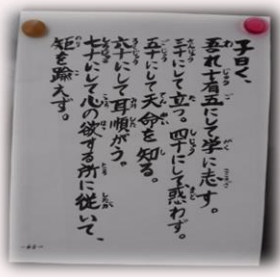 子曰く、
吾れ十有五にして学に志す。
三十にして立つ。四十にして惑わず。
五十にして天命を知る。
六十にして耳順がう。
七十にして心の欲する所に従いて、
矩を踰えず。